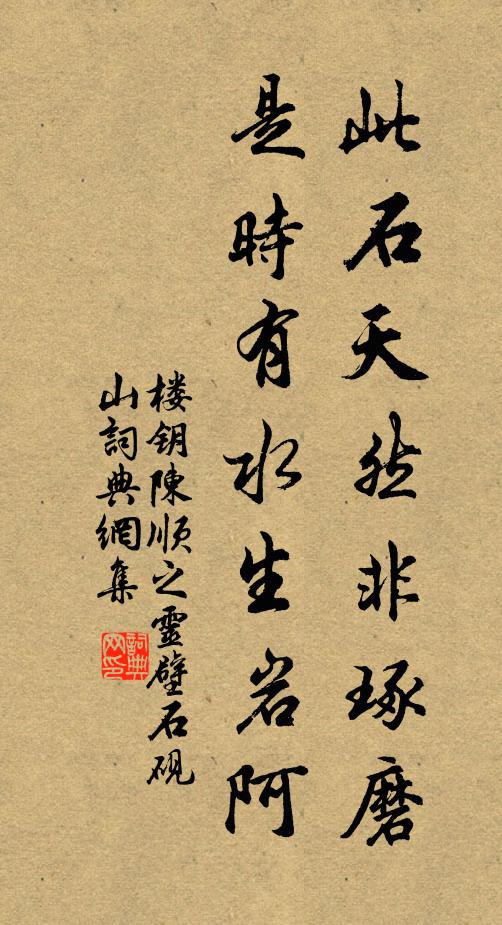 此石天然非琢磨
是時有水生岩阿
楼钥陳順之靈壁石硯
山詞典網集
詞典网印